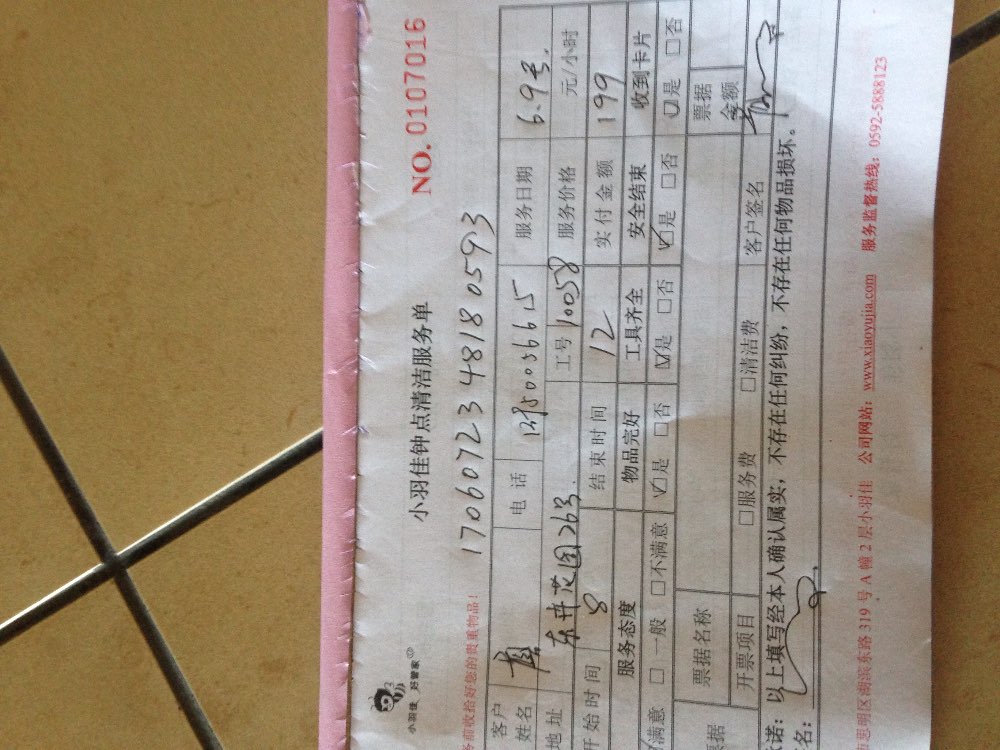 NO. 0107016
小羽佳钟点清洁服务单
小羽佳 好管家
170607234818 0593
务前收拾好您的贵重物品！
客户姓名 电话 服务日期 6.9号
地址 东井花园263. 工号 10058 服务价格 元/小时
开始时间 8 结束时间 12 实付金额 199
服务态度 物品完好 工具齐全 安全结束 收到卡片
满意 □一般 □不满意 是 □否 是 □否 是 □否 是 □否
票据 票据名称 票据金额
开票项目 □服务费 □清洁费 客户签名
诺：以上填写经本人确认属实，不存在任何纠纷，不存在任何物品损坏。
名：
市思明区湖滨东路 319 号 A 幢 2 层小羽佳 公司网站：www.xiaoyujia.com 服务监督热线：0592-5888123